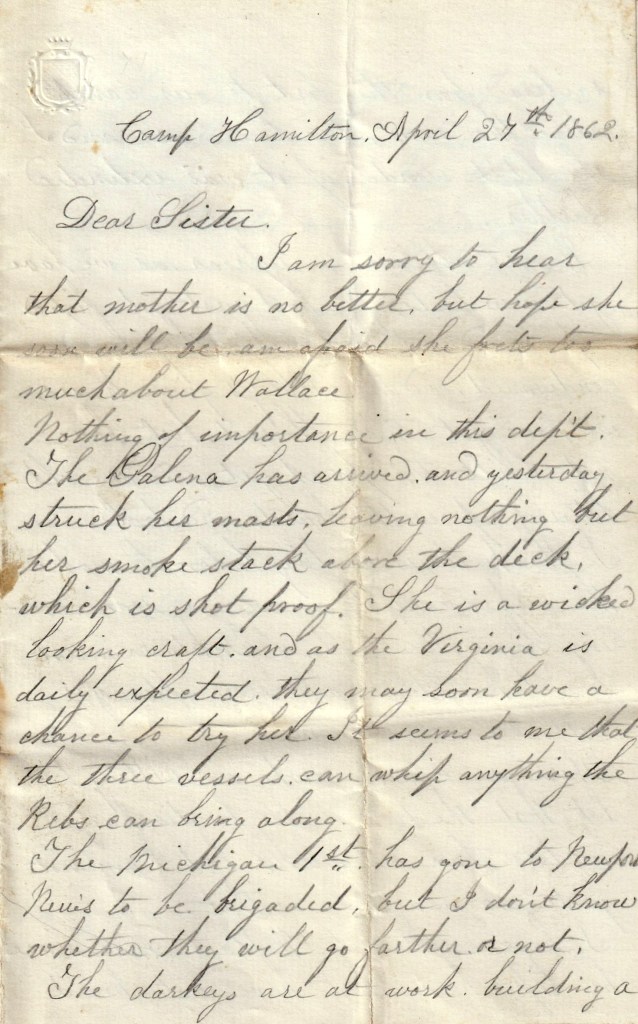 Camp Hamilton, April 27th 1862.
Dear Sister.
I am sorry to hear
that mother is no better, but hope she
soon will be, am afraid she frets too
much about Wallace
Nothing of importance in this dep't.
The Galena has arrived, and yesterday
struck her masts, leaving nothing but
her smoke stack above the deck,
which is shot proof. She is a wicked
looking craft, and as the Virginia is
daily expected, they may soon have a
chance to try her. It seems to me that
the three vessels, can whip anything the
Rebs can bring along.
The Michigan 1st. has gone to Newport
News to be brigaded, but I don't know
whether they will go farther or not.
The darkeys are at work building a